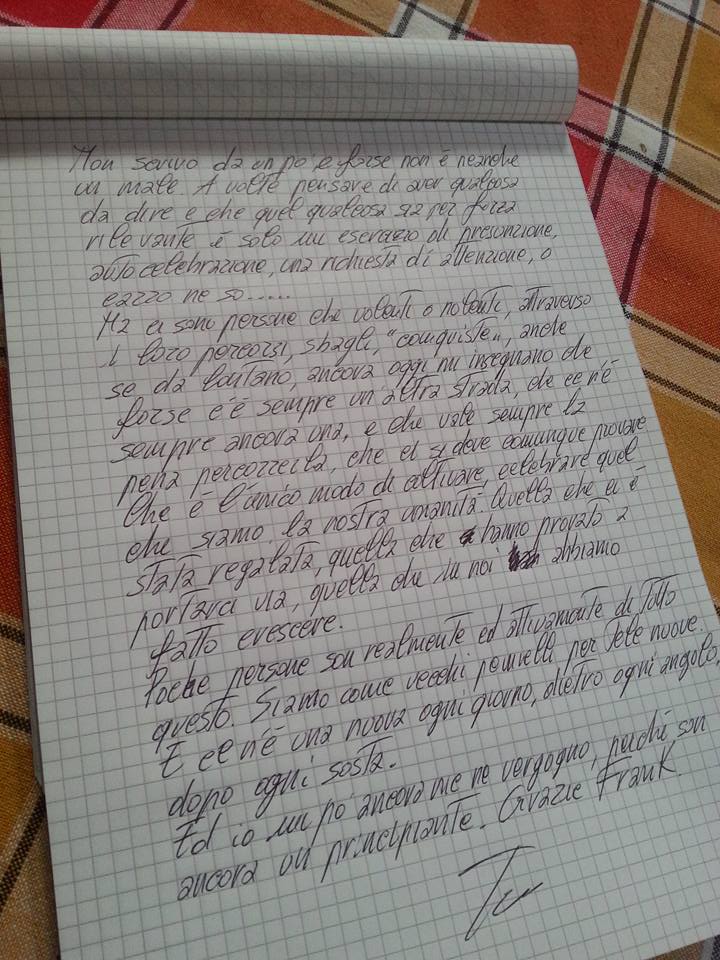 Non scrivo da un po e forse non è neanche
un male. A volte pensare di aver qualcosa
da dire e che quel qualcosa sia per forza
rilevante è solo un esercizio di presunzione,
autocelebrazione, una richiesta di attenzione, o
cazzo ne so.....
Ma ci sono persone che volenti o nolenti, attraverso
i loro percorsi, sbagli, "conquiste", anche
se da lontano, ancora oggi mi insegnano che
forse c'è sempre un'altra strada, che ce n'è
sempre ancora una, e che vale sempre la
pena percorrerla, che ci si deve comunque provare
Che è l'unico modo di coltivare, celebrare quel
che siamo, la nostra umanità. Quella che ci è
stata regalata, quella che hanno provato a
portarci via, quella che in noi abbiamo
fatto crescere.
Poche persone son realmente ed attivamente di tutto
questo. Siamo come vecchi pennelli per tele nuove.
E ce n'è una nuova ogni giorno, dietro ogni angolo,
dopo ogni sosta.
Ed io un pò ancora me ne vergogno, perché son
ancora un principiante. Grazie Frank.